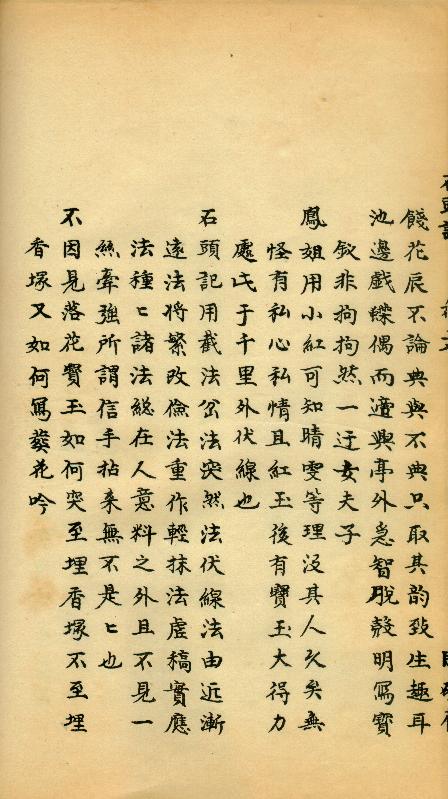 餞花辰不論典與不典只取其韵致生趣耳
池邊戲蝶偶而適興亭外急智脫殼明寫寶
釵非拘拘然一迂女夫子
鳳姐用小紅可知晴雯等理沒其人久矣無
怪有私心私情且紅玉後有寶玉大得力
處氏于千里外伏線也
石頭記用截法岔法突然法伏線法由近漸
遠法將繁改儉法重作輕抹法虛稿實應
法種〻諸法総在人意料之外且不見一
絲牽強所謂信手拈来無不是〻也
不因見落花寶玉如何突至埋香塚不至埋
香塚又如何寫葵花吟